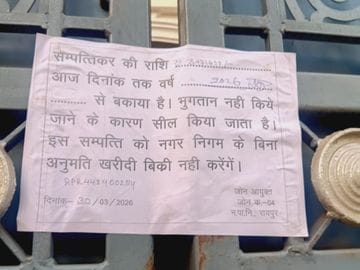 सम्पत्तिकर की राशि
आज दिनांक तक वर्ष .......... 2026 तक
............ से बकाया है। भुगतान नही किये
जाने के कारण सील किया जाता है।
इस सम्पत्ति को नगर निगम के बिना
अनुमति खरीदी बिकी नही करेंगें।
दिनांक- 30/03/2026
जोन आयुक्त
जोन क.-04
न.पा.नि., रायपुर